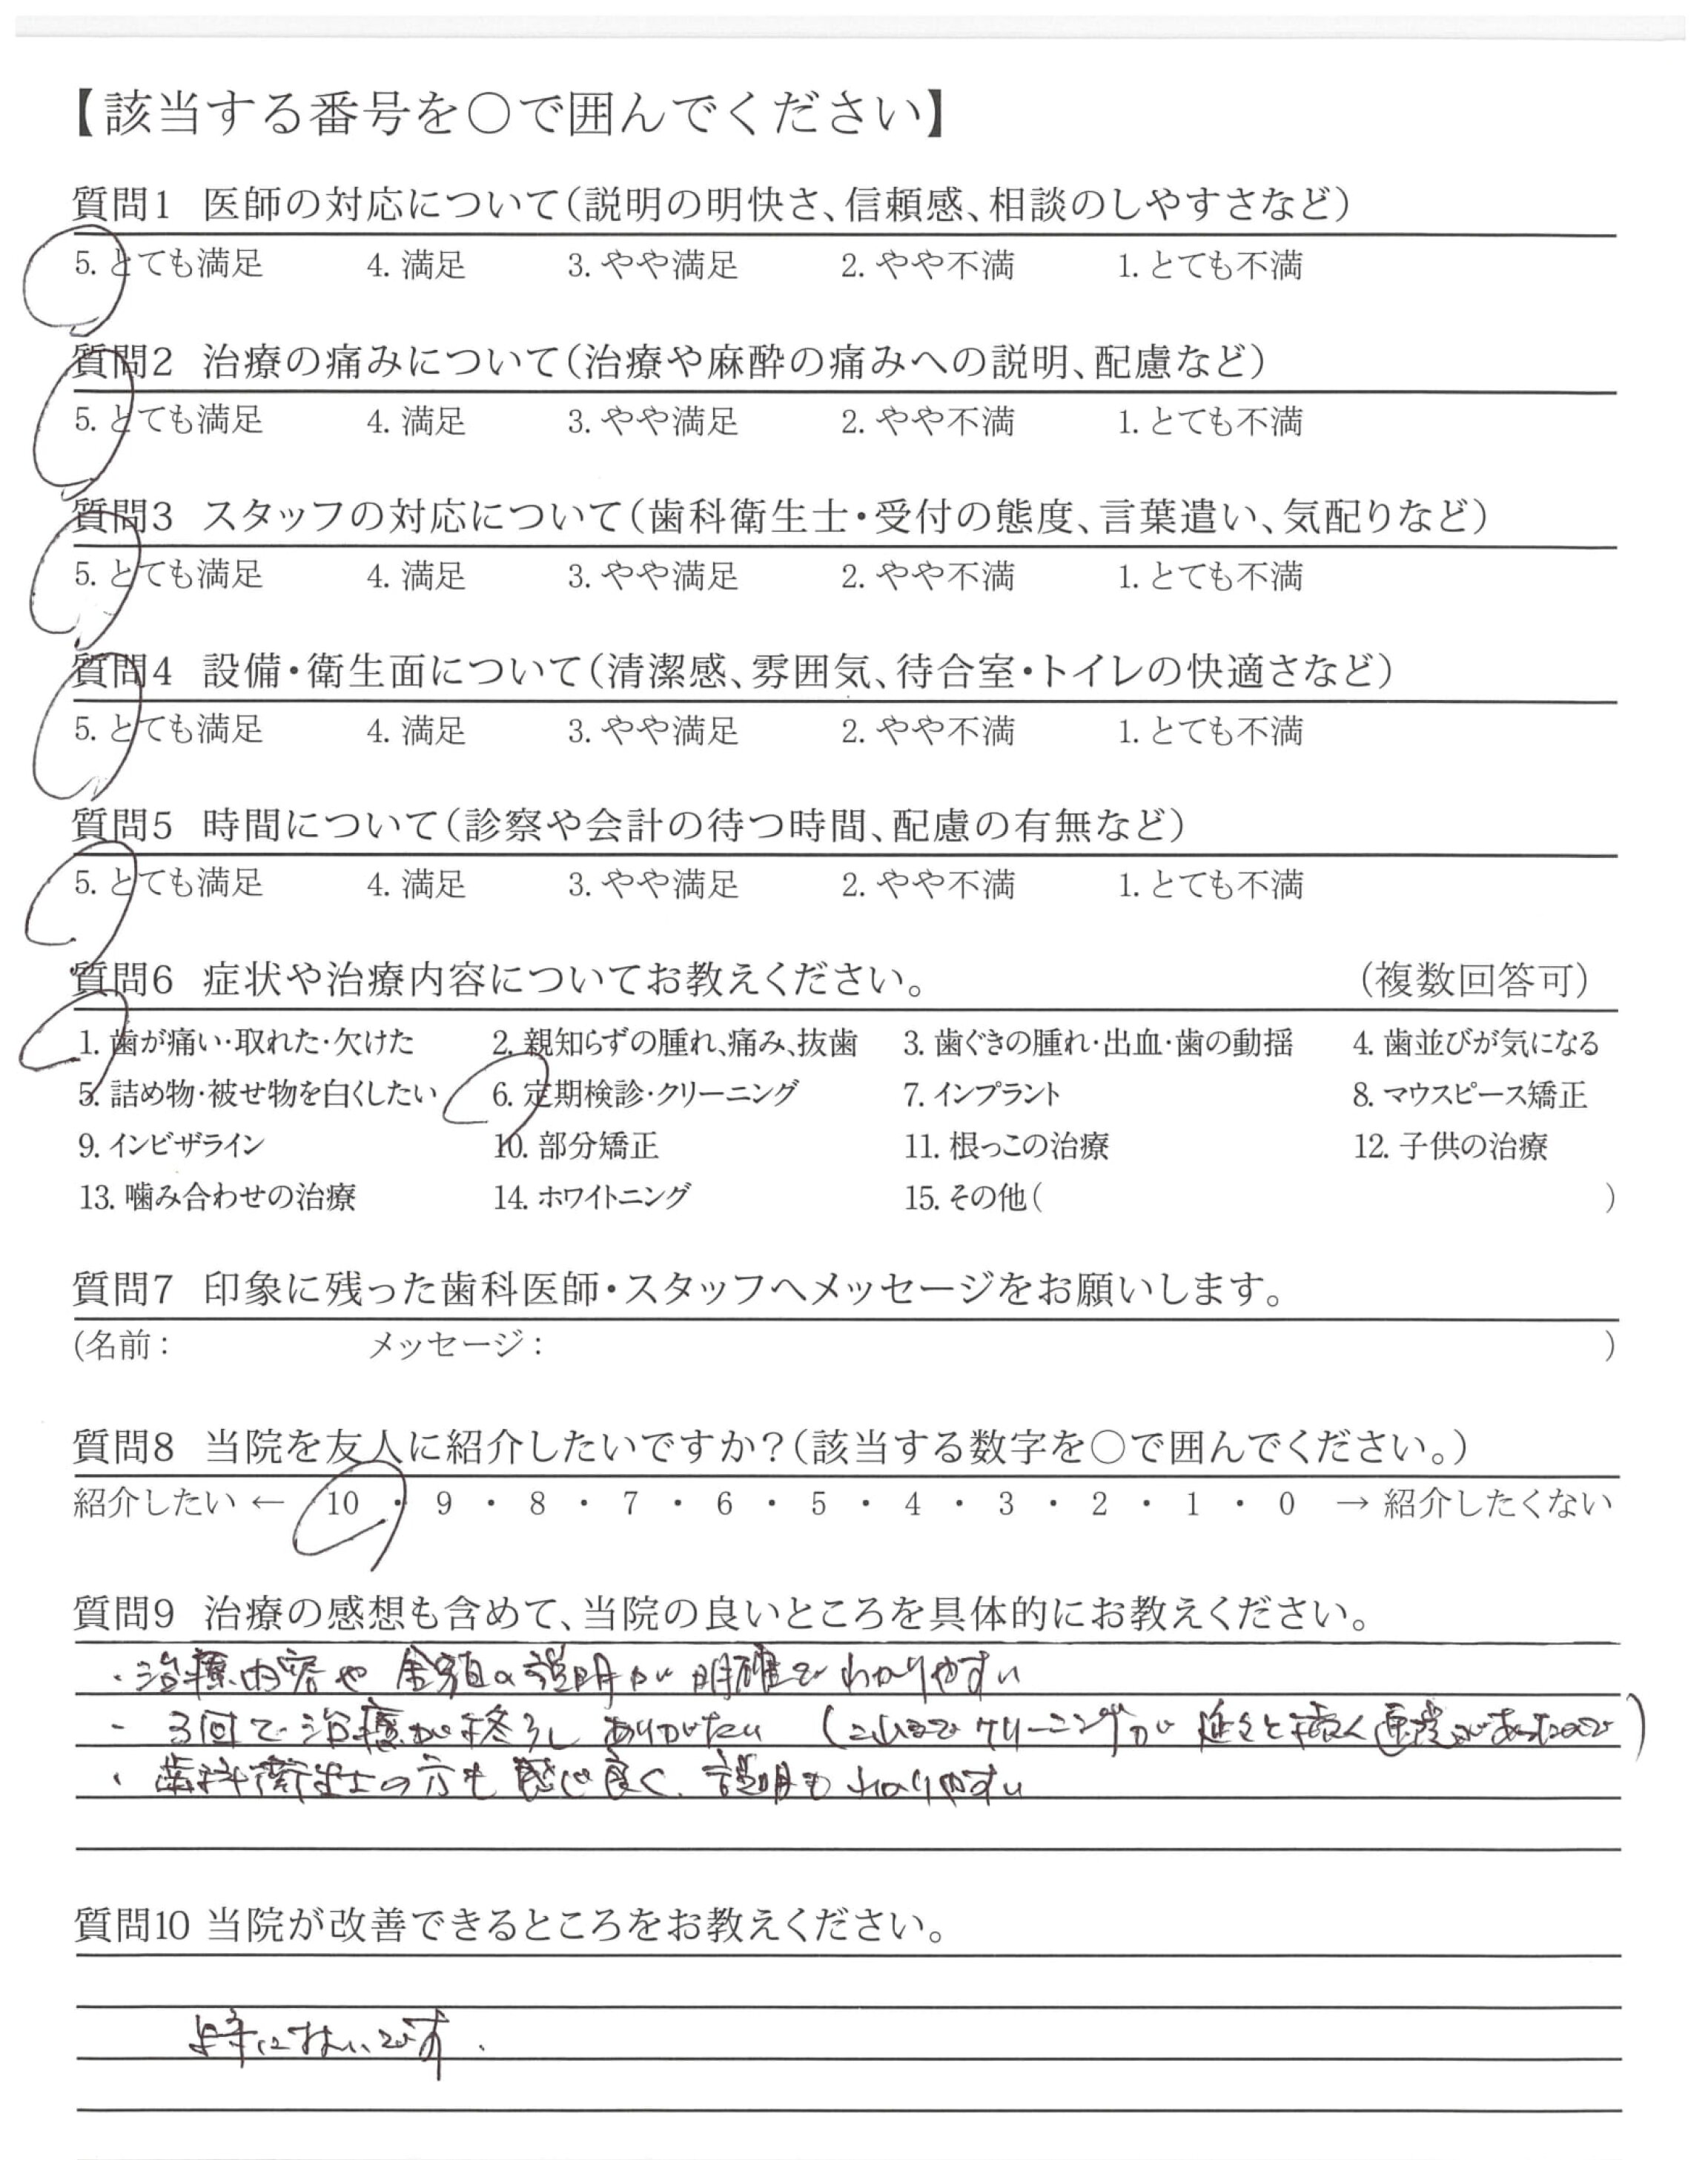 【該当する番号を○で囲んでください】
質問1 医師の対応について(説明の明快さ、信頼感、相談のしやすさなど)
5. とても満足 4. 満足 3. やや満足 2. やや不満 1. とても不満
質問2 治療の痛みについて(治療や麻酔の痛みへの説明、配慮など)
5. とても満足 4. 満足 3. やや満足 2. やや不満 1. とても不満
質問3 スタッフの対応について(歯科衛生士・受付の態度、言葉遣い、気配りなど)
5. とても満足 4. 満足 3. やや満足 2. やや不満 1. とても不満
質問4 設備・衛生面について(清潔感、雰囲気、待合室・トイレの快適さなど)
5. とても満足 4. 満足 3. やや満足 2. やや不満 1. とても不満
質問5 時間について(診察や会計の待つ時間、配慮の有無など)
5. とても満足 4. 満足 3. やや満足 2. やや不満 1. とても不満
質問6 症状や治療内容についてお教えください。 (複数回答可)
1. 歯が痛い・取れた・欠けた 2. 親知らずの腫れ、痛み、抜歯 3. 歯ぐきの腫れ・出血・歯の動揺 4. 歯並びが気になる
5. 詰め物・被せ物を白くしたい 6. 定期検診・クリーニング 7. インプラント 8. マウスピース矯正
9. インビザライン 10. 部分矯正 11. 根っこの治療 12. 子供の治療
13. 噛み合わせの治療 14. ホワイトニング 15. その他( )
質問7 印象に残った歯科医師・スタッフへメッセージをお願いします。
(名前: メッセージ: )
質問8 当院を友人に紹介したいですか?(該当する数字を○で囲んでください。)
紹介したい ← 10 ・ 9 ・ 8 ・ 7 ・ 6 ・ 5 ・ 4 ・ 3 ・ 2 ・ 1 ・ 0 → 紹介したくない
質問9 治療の感想も含めて、当院の良いところを具体的にお教えください。
・治療内容や金額の説明が明確でわかりやすい
・3回で治療が終了し ありがたい (これまでクリーニングが延々と続く があったので)
・歯科衛生士の方も感じ良く、説明もわかりやすい
質問10 当院が改善できるところをお教えください。
特にないです.